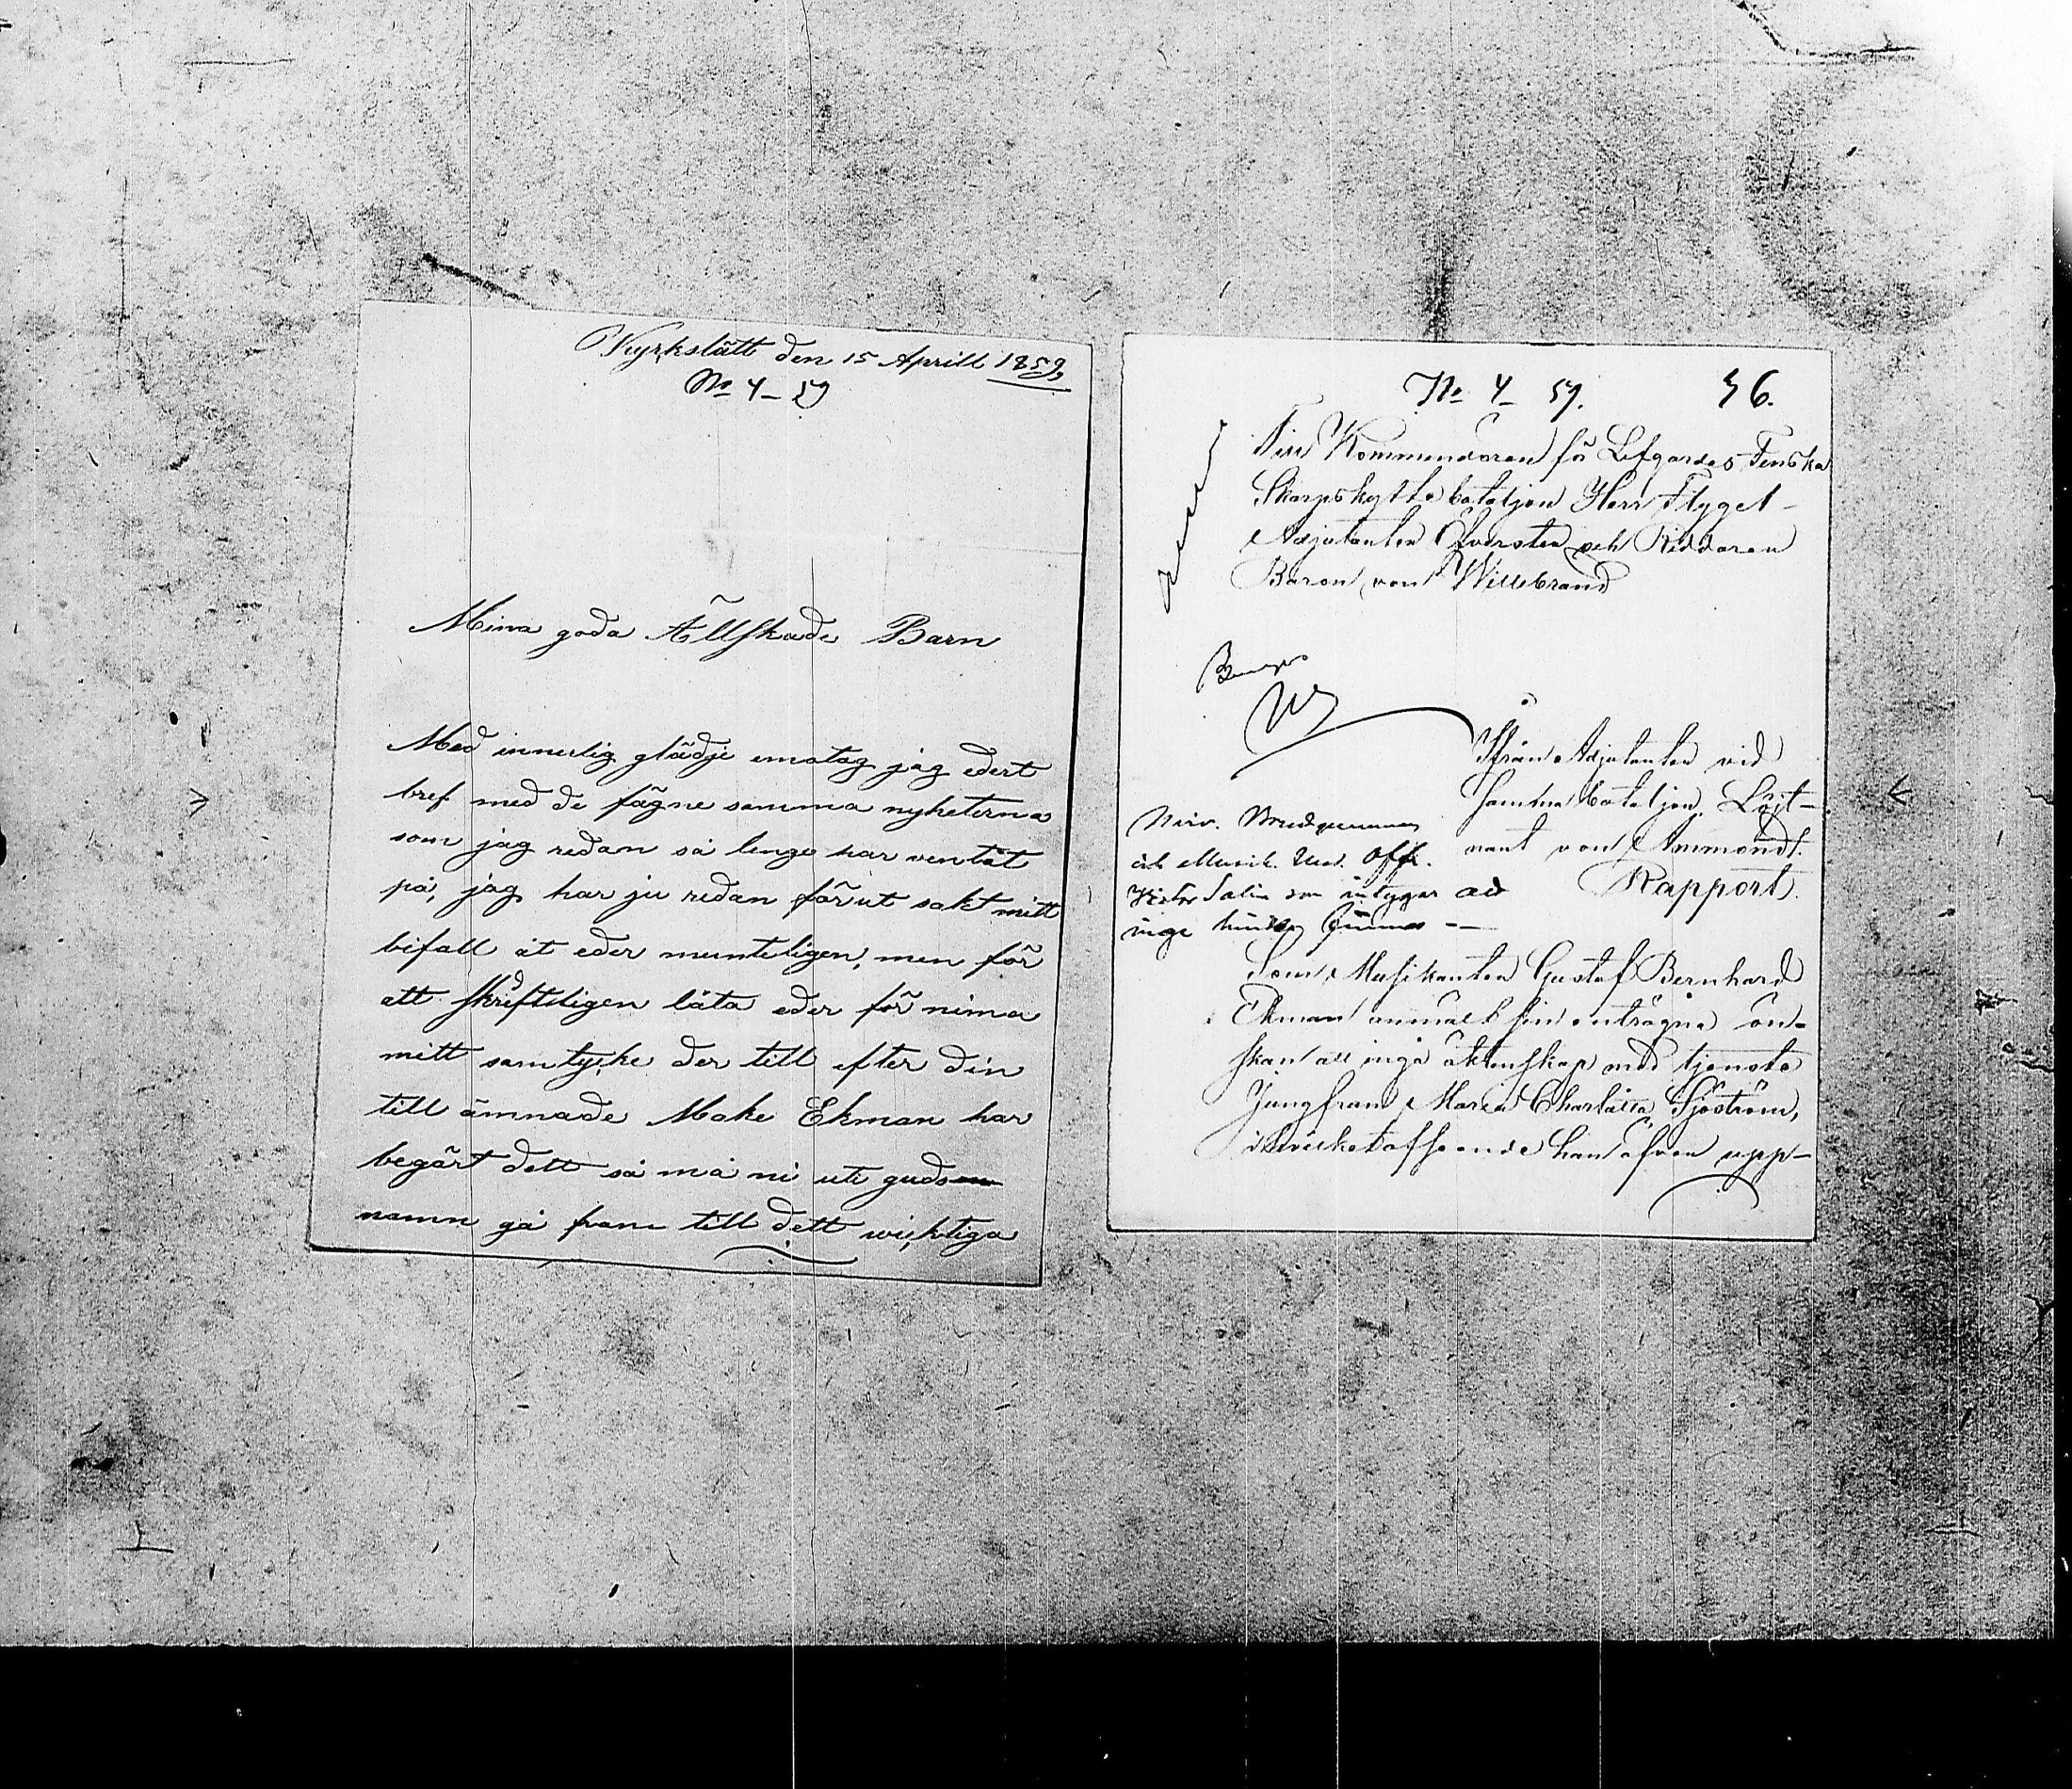 Kyrkslätt den 15 Aprill 1859,
No 4 – 59
Mina goda Ällskade Barn
Med innerlig glädje emotog jag edert
bref med de fägne samma nyheterna
som jag redan så lenge har ventat
på, jag har ju redan förut sakt mitt
bifall åt eder munteligen, men för
att skriftiligen låta eder för nima
mitt samtycke der till efter din
till ämnade Make Ekman har
begärt dett så må ni uti guds
namn gå fram till dett wicktiga
No 4 – 59.
Till Kommendören för Lifgardes Finska
Skarpskytte bataljon Herr Flygel-
Adjutanten Öfversten och Riddaren
Baron von Willebrand
Ifrån Adjutanten vid
samma bataljon Löjt-
nant von Ammondt.
Rapport.
och Musik. Und. Off.
Victor Salin som intygar att
inge hinder finnes —
Som Musikanten Gustaf Bernhard
Ekman anmält sin enträgna ön-
skan att ingå äktenskap med tjenste
Jungfrun Maria Charlotta Sjöström,
i hvilket afseende han äfven upp-